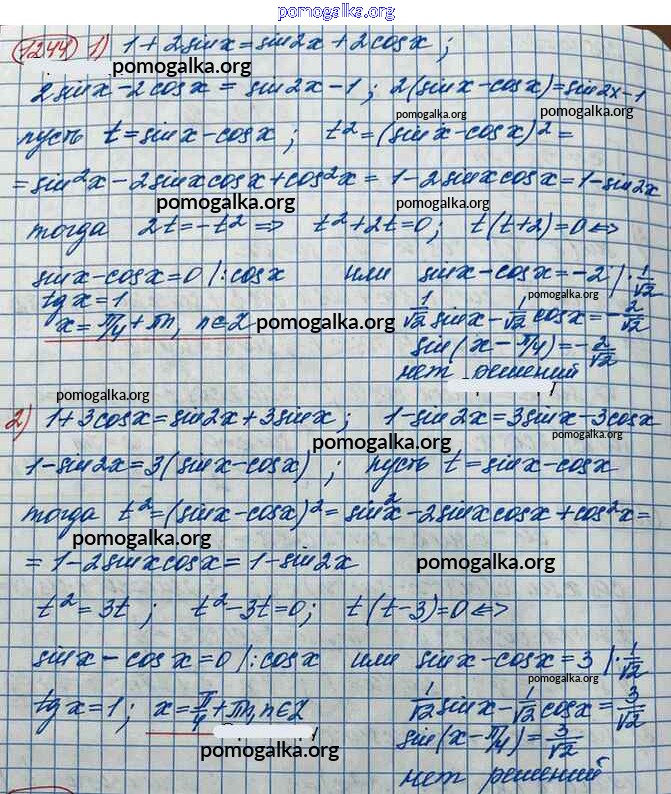 pomogalka.org
1244 1) 1+2sinx=sin2x+2cosx;
pomogalka.org
2sinx-2cosx=sin2x-1; 2(sinx-cosx)=sin2x-1
pomogalka.org pomogalka.org
пусть t=sinx-cosx; t²=(sinx-cosx)²=
=sin²x-2sinxcosx+cos²x=1-2sinxcosx=1-sin2x
pomogalka.org pomogalka.org
тогда 2t=-t² => t²+2t=0; t(t+2)=0<=>
sinx-cosx=0 |:cosx или sinx-cosx=-2 |·1/√2
tgx=1
pomogalka.org
x=π/4+πn, n∈Z pomogalka.org 1/√2 sinx-1/√2 cosx=-2/√2
sin(x-π/4)=-2/√2
pomogalka.org
нет решений
pomogalka.org
2) 1+3cosx=sin2x+3sinx; 1-sin2x=3sinx-3cosx
pomogalka.org pomogalka.org
1-sin2x=3(sinx-cosx); пусть t=sinx-cosx
тогда t²=(sinx-cosx)²=sin²x-2sinxcosx+cos²x=
pomogalka.org
=1-2sinxcosx=1-sin2x pomogalka.org
t²=3t; t²-3t=0; t(t-3)=0<=>
sinx-cosx=0 |:cosx или sinx-cosx=3 |·1/√2
pomogalka.org
tgx=1; x=π/4+πn, n∈Z 1/√2 sinx-1/√2 cosx=3/√2
pomogalka.org sin(x-π/4)=3/√2
нет решений